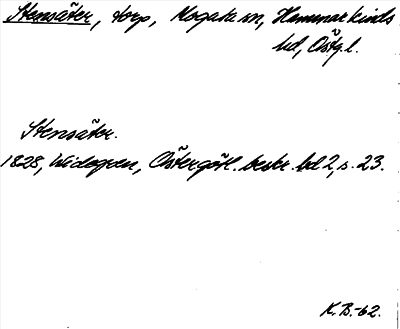 Stensäter, torp, Regna sn, Hammarkinds
hd, Östg.l.
Stensäter.
1828, Widegren, Östergötl. beskr. bd 2, s. 23.
K.B.-62.